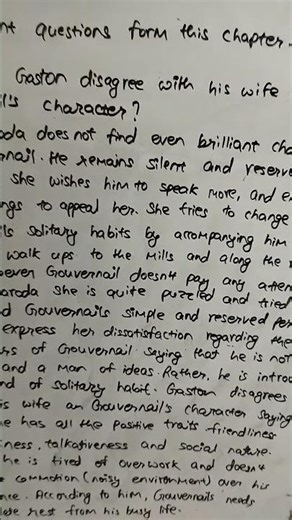 nt questions form this chapter.
Gaston disagree with his wife
l's character?
roda does not find even brilliant cha
rnail. He remains silent and reserve
she wishes him to speak more, and e
ngs to appeal her. She tries to change
ls solitary habits by accompanying him
walk ups to the Mills and along the
ever Gouvernail doesn't pay any atten
aroda she is quite puzzled and tried
d Gouvernails simple and reserved per
express her dissatisfaction regarding the
rs of Gouvernail saying that he is not
and a man of ideas. Rather, he is intro
nd of solitary habit. Gaston disagrees
is wife on Gouvernail's character saying
he has all the positive traits friendliness
iness, talkativeness and social nature.
he is tired of overwork and doesn't
commotion (noisy environment) over his
nce. According to him, Gouvernails needs
lete rest from his busy life.